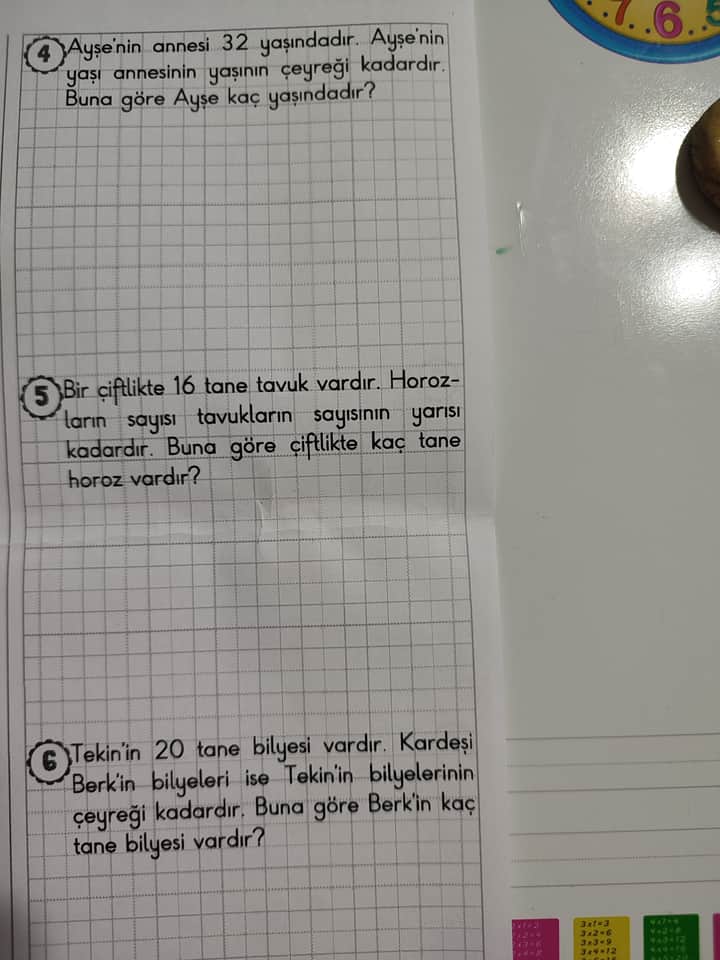 4 Ayşe'nin annesi 32 yaşındadır. Ayşe'nin
yaşı annesinin yaşının çeyreği kadardır.
Buna göre Ayşe kaç yaşındadır?
5 Bir çiftlikte 16 tane tavuk vardır. Horoz-
ların sayısı tavukların sayısının yarısı
kadardır. Buna göre çiftlikte kaç tane
horoz vardır?
6 Tekin'in 20 tane bilyesi vardır. Kardeşi
Berk'in bilyeleri ise Tekin'in bilyelerinin
çeyreği kadardır. Buna göre Berk'in kaç
tane bilyesi vardır?
7 6 5
3x1=3
3x2=6
3x3=9
3x4=12